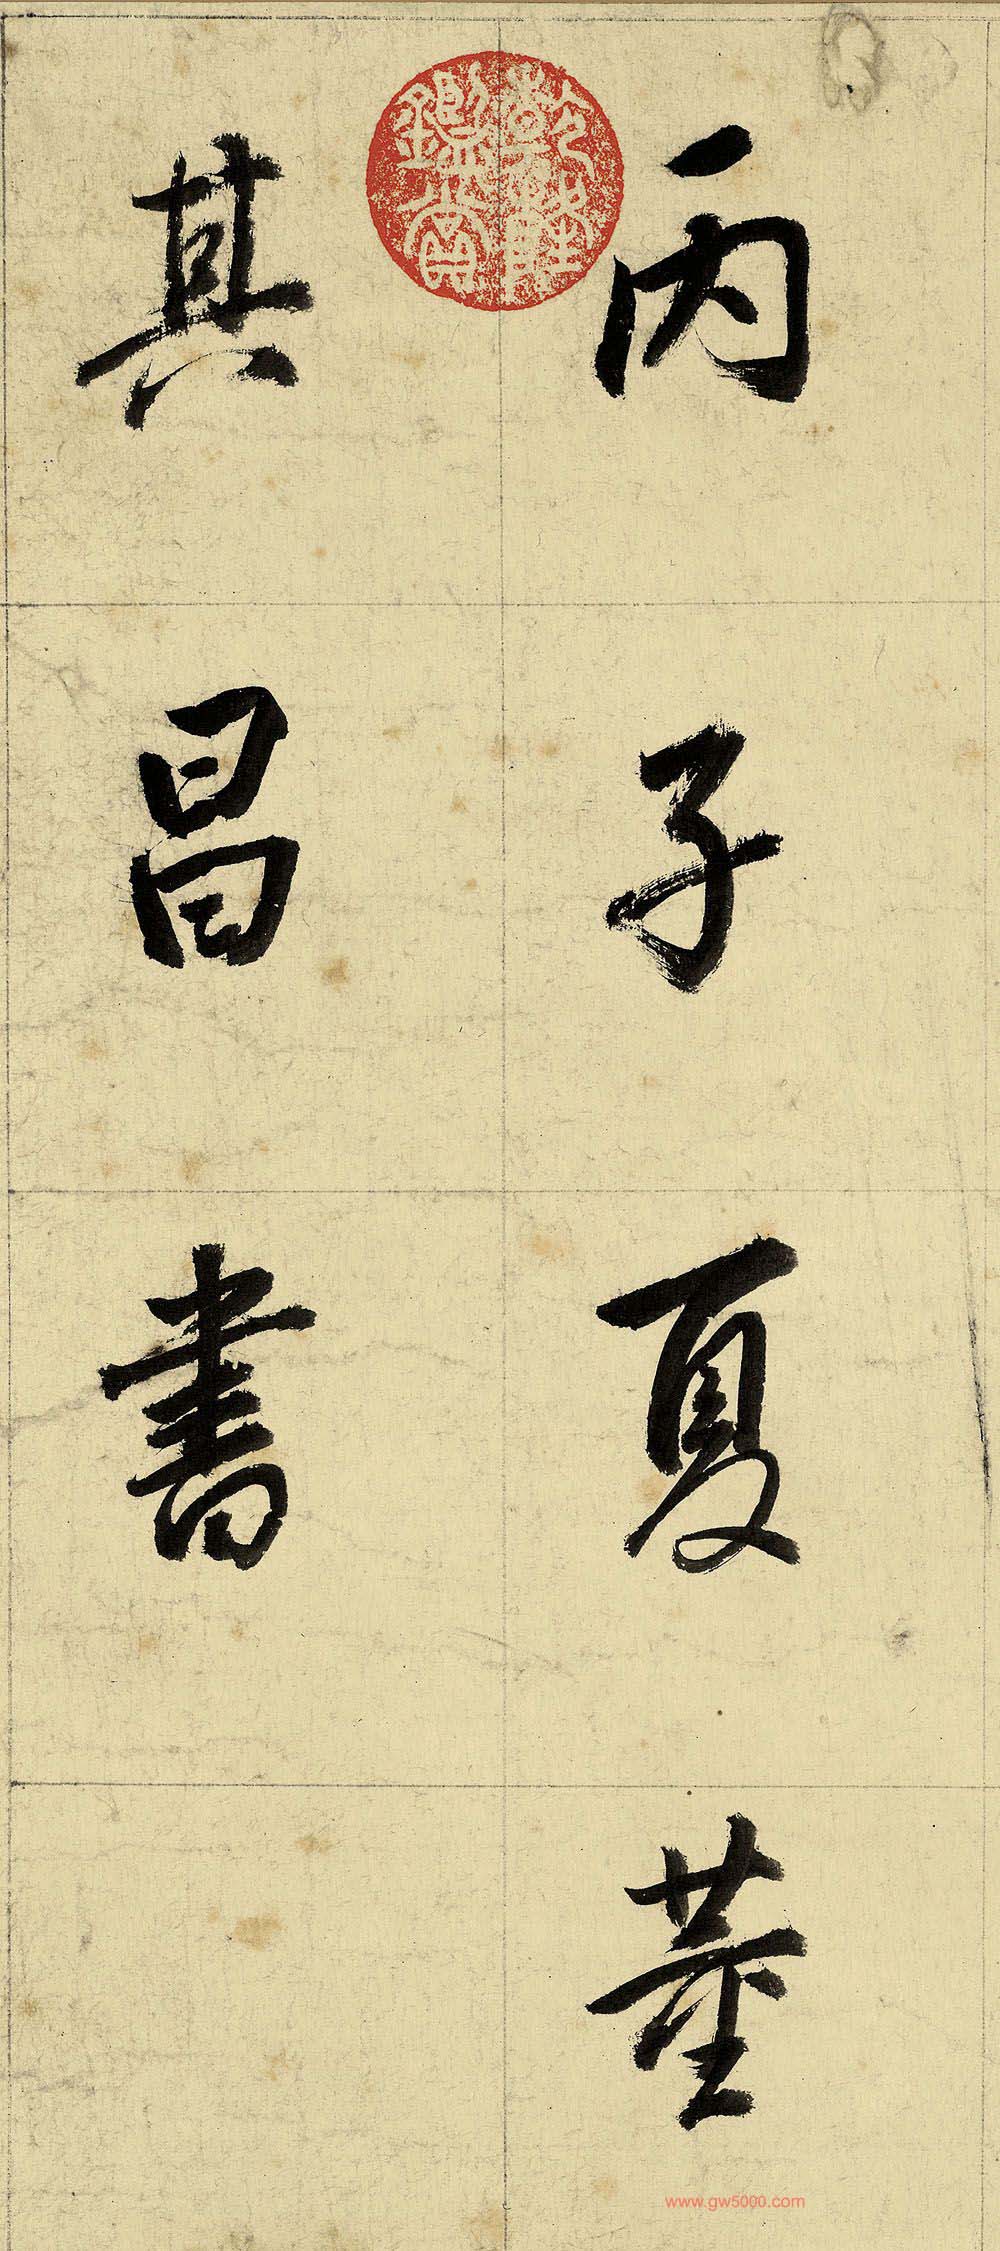 丙子夏董
其昌書
乾隆鑑賞
www.gw5000.com